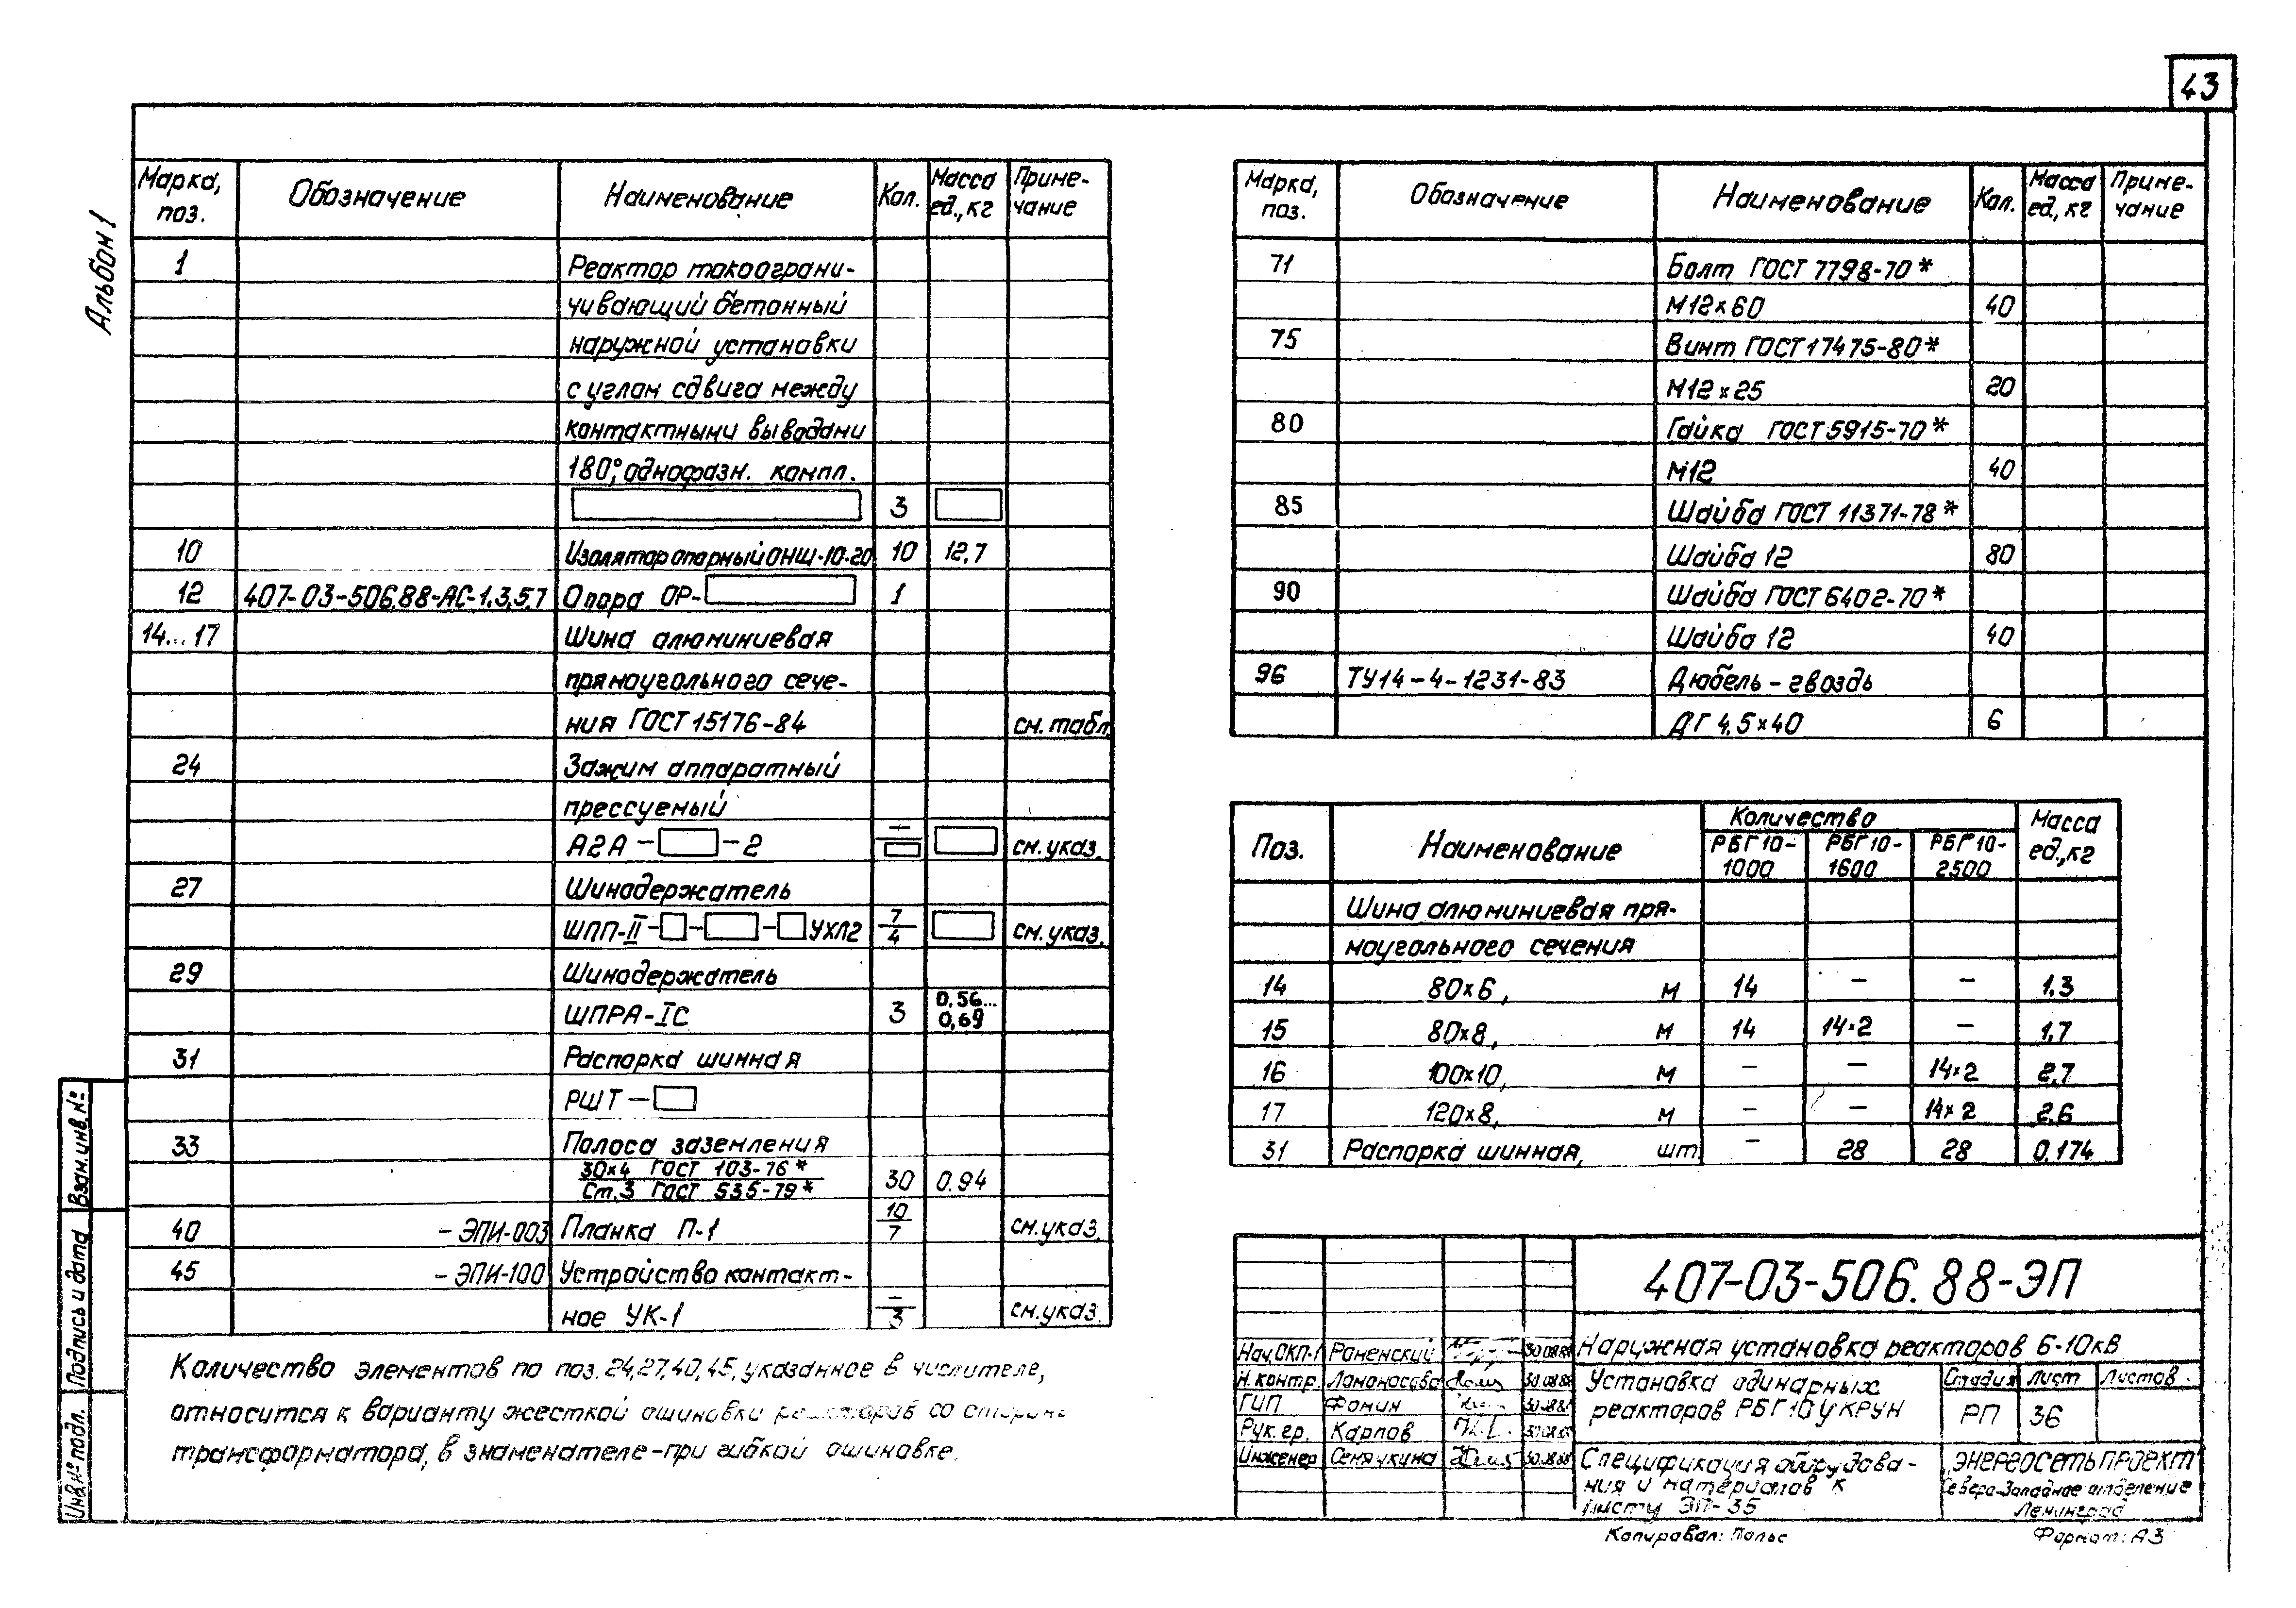 43
Альбом 1
Марка, поз. Обозначение Наименование Кол. Масса ед., кг Приме-чание
1 Реактор токоограни-
чивающий бетонный
наружной установки
с углом сдвига между
контактными выводами
180°, однофазн. компл.
3
10 Изолятор опорный ОНШ-10-20 10 12,7
12 407-03-506.88-АС-1,3,5,7 Опора ОР- 1
14...17 Шина алюминиевая
прямоугольного сече-
ния ГОСТ 15176-84 см. табл.
24 Зажим аппаратный
прессуемый
А2А- -2 - см. указ.
27 Шинодержатель
ШПП-II- - - УХЛ2 7/4 см. указ.
29 Шинодержатель
ШПРА-IС 3 0,56...0,69
31 Распорка шинная
РШТ-
33 Полоса заземления
30х4 ГОСТ 103-76*
Ст.3 ГОСТ 535-79* 30 0.94
40 -ЭПИ-003 Планка П-1 10/7 см. указ.
45 -ЭПИ-100 Устройство контакт-
ное УК-1 -/3 см. указ.
Количество элементов по поз. 24,27,40,45, указанное в числителе,
относится к варианту жесткой ошиновки реакторов со стороны
трансформатора, в знаменателе-при гибкой ошиновке.
Марка, поз. Обозначение Наименование Кол. Масса ед., кг Приме-чание
71 Болт ГОСТ 7798-70*
М12х60 40
75 Винт ГОСТ 17475-80*
М12х25 20
80 Гайка ГОСТ 5915-70*
М12 40
85 Шайба ГОСТ 11371-78*
Шайба 12 80
90 Шайба ГОСТ 6402-70*
Шайба 12 40
96 ТУ14-4-1231-83 Дюбель-гвоздь
ДГ 4,5х40 6
Поз. Наименование Количество Масса ед., кг
РБГ 10-1000 РБГ 10-1600 РБГ 10-2500
Шина алюминиевая пря-
моугольного сечения
14 80х6, м 14 - - 1.3
15 80х8, м 14 14×2 - 1.7
16 100х10, м - - 14×2 2.7
17 120х8, м - - 14×2 2.6
31 Распорка шинная, шт. - 28 28 0.174
407-03-506.88-ЭП
Наружная установка реакторов 6-10кВ
Нач.ОКП-1 Роменский 30.08.88
Н.контр. Ломоносова 30.08.88
ГИП Фомин 30.08.88
Рук.гр. Карпов 30.08.88
Инженер Семячкина 30.08.88
Установка одинарных
реакторов РБГ 10 у КРУН
Стадия Лист Листов
РП 36
Спецификация оборудова-
ния и материалов к
листу ЭП-35
ЭНЕРГОСЕТЬПРОЕКТ
Северо-Западное отделение
Ленинград
Копировал: Польс
Формат: А3
Взам.инв.№
Подпись и дата
Инв.№ подл.